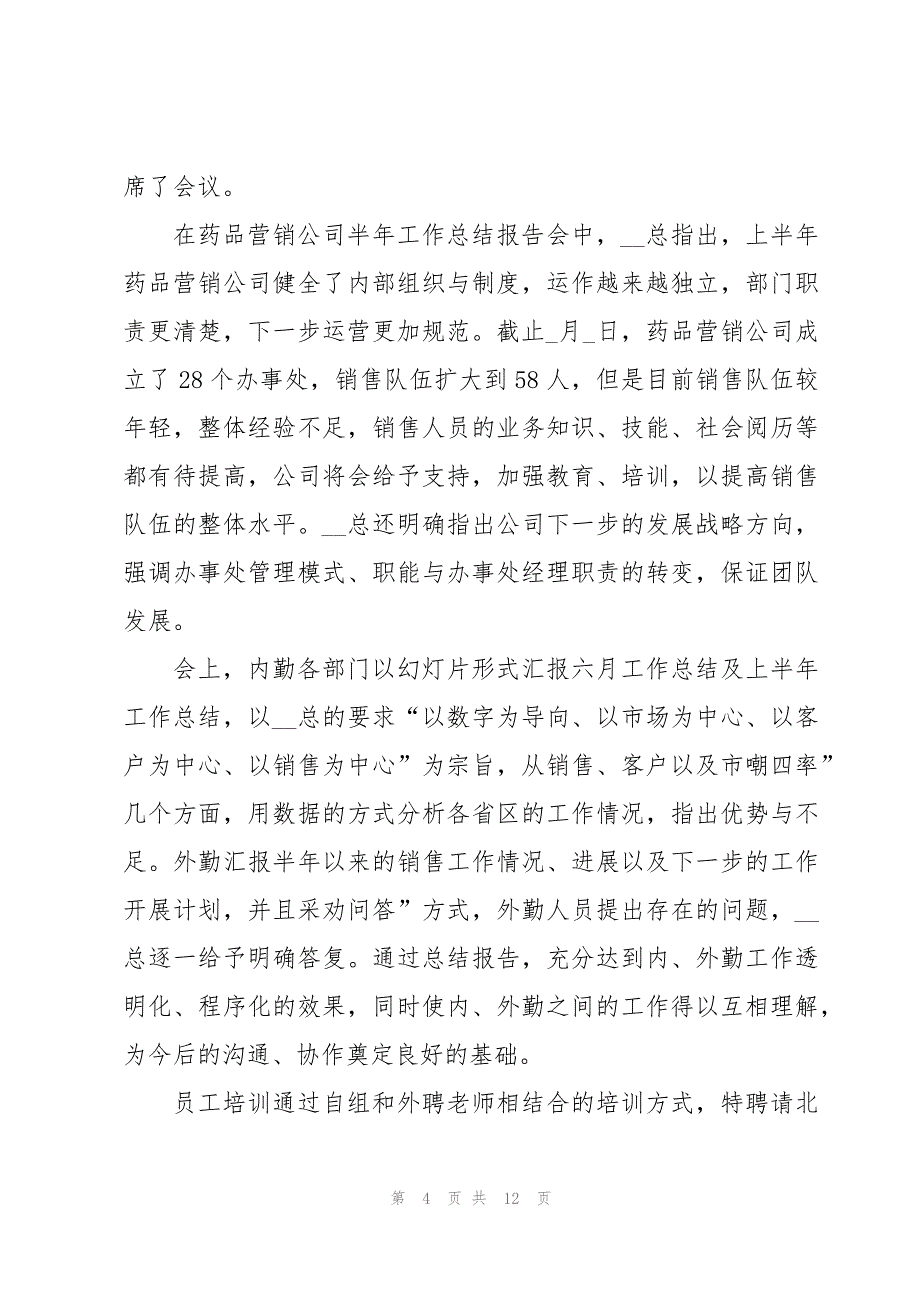 席了会议。
在药品营销公司半年工作总结报告会中，__总指出，上半年
药品营销公司健全了内部组织与制度，运作越来越独立，部门职
责更清楚，下一步运营更加规范。截止_月_日，药品营销公司成
立了 28 个办事处，销售队伍扩大到 58 人，但是目前销售队伍较
年轻，整体经验不足，销售人员的业务知识、技能、社会阅历等
都有待提高，公司将会给予支持，加强教育、培训，以提高销售
队伍的整体水平。__总还明确指出公司下一步的发展战略方向，
强调办事处管理模式、职能与办事处经理职责的转变，保证团队
发展。
会上，内勤各部门以幻灯片形式汇报六月工作总结及上半年
工作总结，以__总的要求“以数字为导向、以市场为中心、以客
户为中心、以销售为中心”为宗旨，从销售、客户以及市嘲四率”
几个方面，用数据的方式分析各省区的工作情况，指出优势与不
足。外勤汇报半年以来的销售工作情况、进展以及下一步的工作
开展计划，并且采劝问答”方式，外勤人员提出存在的问题，__
总逐一给予明确答复。通过总结报告，充分达到内、外勤工作透
明化、程序化的效果，同时使内、外勤之间的工作得以互相理解，
为今后的沟通、协作奠定良好的基础。
员工培训通过自组和外聘老师相结合的培训方式，特聘请北
第 4 页 共 12 页